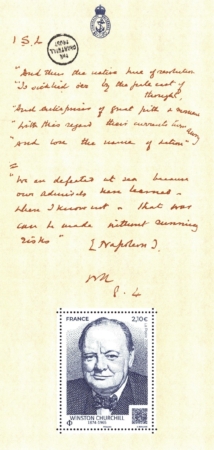 1 S. L
"And thus the native hue of resolution
"Is sicklied o'er by the pale cast of
thought
"And enterprises of great pith & moment
"With this regard their currents turn away
"And lose the name of action"
"We are defeated at sea because
our admirals have learned –
where I know not – that war
can be made without running
risks"
[Napoleon].
8 . 4
FRANCE 2,10 €
WINSTON CHURCHILL
1874-1965